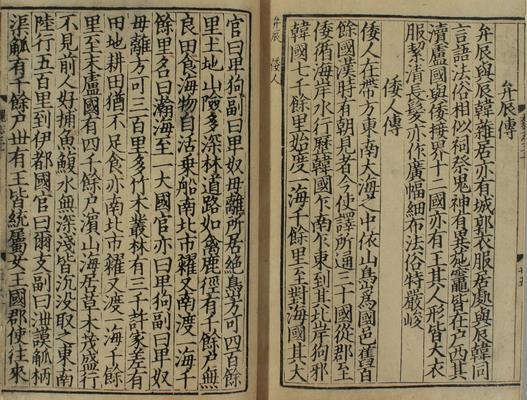 弁辰　倭人
弁辰傳
弁辰與辰韓雜居亦有城郭衣服居處與辰韓同
言語法俗相似祠祭鬼神有異施竈皆在戶西其
瀆盧國與倭接界十二國亦有王其人形皆大衣
服絜清長髮亦作廣幅細布法俗特嚴峻
倭人傳
倭人在帶方東南大海之中依山島爲國邑舊百
餘國漢時有朝見者今使譯所通三十國從郡至
倭循海岸水行歷韓國乍南乍東到其北岸狗邪
韓國七千餘里始度一海千餘里至對海國其大
官曰卑狗副曰卑奴毋離所居絶島方可四百餘
里土地山險多深林道路如禽鹿徑有千餘戶無
良田食海物自活乗船南北市糴又南渡一海千
餘里名曰瀚海至一大國官亦曰卑狗副曰卑奴
毋離方可三百里多竹木叢林有三千許家差有
田地耕田猶不足食亦南北市糴又渡一海千餘
里至末盧國有四千餘戶濱山海居草木茂盛行
不見前人好捕魚鰒水無深淺皆沉没取之東南
陸行五百里到伊都國官曰爾支副曰泄謨觚柄
渠觚有千餘戶世有王皆統屬女王國郡使往來